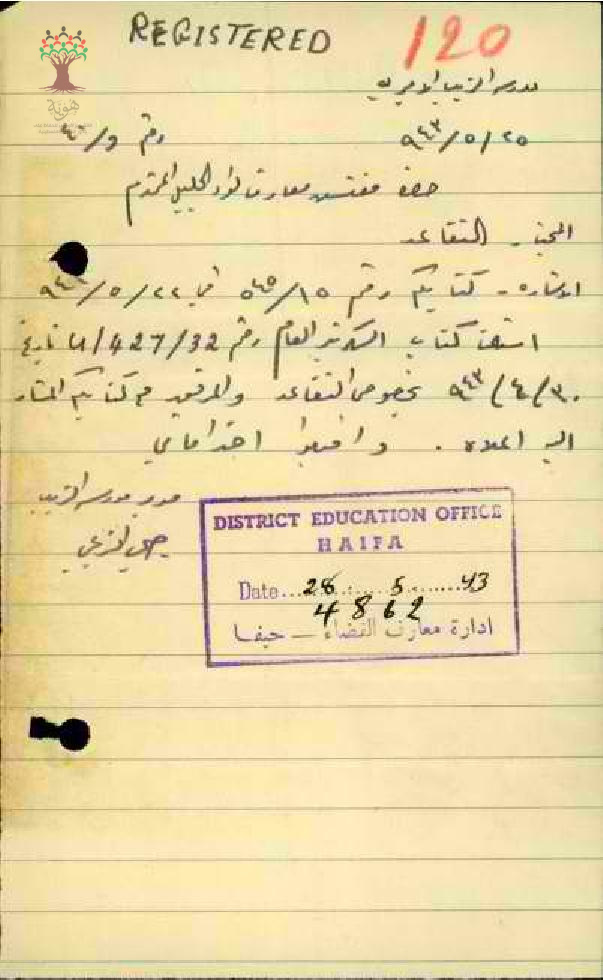 REGISTERED
120
هوية
مدرسة الزيب الاميرية
٩٤٣/٥/٢٥
رقم و/٤٠
حضرة مفتش معارف لواء الجليل المحترم
المبحث - التقاعد
الاشارة - كتابكم رقم ٥٤٥/١٥ في ٩٤٣/٥/٢٢
استلمت كتاب السكرتير العام رقم U/427/32 تاريخ
٩٤٣/٤/٣٠ بخصوص التقاعد والمرفق مع كتابكم المشار
اليه اعلاه . واقبلوا احترامي
مدير مدرسة الزيب
DISTRICT EDUCATION OFFICE
HAIFA
Date...28......5.......43
4862
ادارة معارف القضاء — حيفا